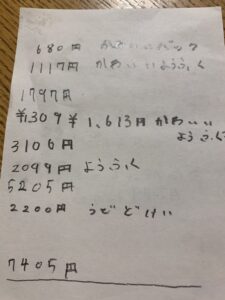 680円 かわいいバック
1117円 かわいいようふく
1797円
¥1309 ¥1,613円 かわいい
ようふく
3106円
2099円 ようふく
5205円
2200円 うでどけい
7405円